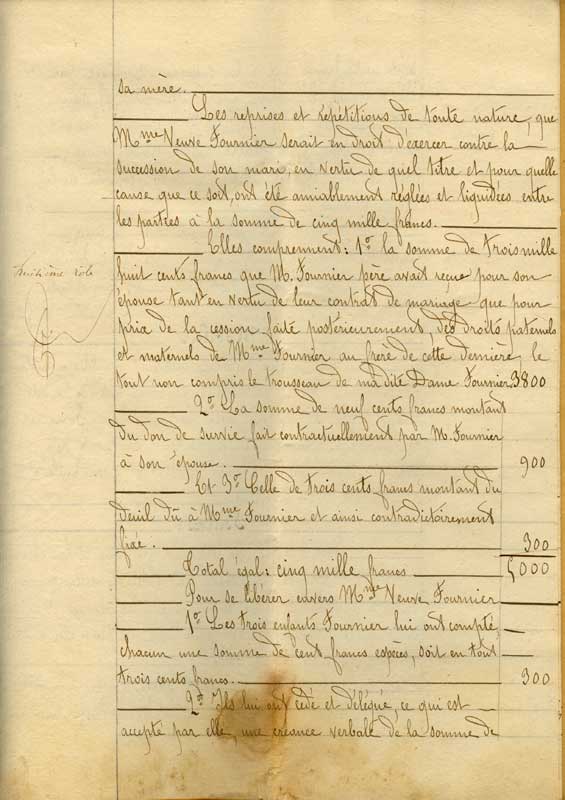 sa mère.
Les reprises et répétitions de toute nature, que
Mme Veuve Fournier serait en droit d'exercer contre la
succession de son mari, en vertu de quel titre et pour quelle
cause que ce soit, ont été amiablement réglées et liquidées entre
les parties à la somme de cinq mille francs.
Elles comprennent: 1o la somme de trois mille
huitième rôle
huit cents francs que M. Fournier père avait reçue pour son
épouse tant en vertu de leur contrat de mariage que pour
prix de la cession faite postérieurement, des droits paternels
et maternels de Mme Fournier au frère de cette dernière, le
tout non compris le trousseau de ma dite Dame Fournier 3800
2o La somme de neuf cents francs montant
du don de survie fait contractuellement par M. Fournier
à son épouse. 900
Et 3o Celle de trois cents francs montant du
deuil dû à Mme Fournier et ainsi contradictoirement
fixée. 300
Total égal: cinq mille francs 5000
Pour se libérer envers Mme Veuve Fournier
1o Les trois enfants Fournier lui ont compté
chacun une somme de cent francs espèces, soit en tout
trois cents francs. 300
2o Ils lui ont cédé et délégué, ce qui est
accepté par elle, une créance verbale de la somme de